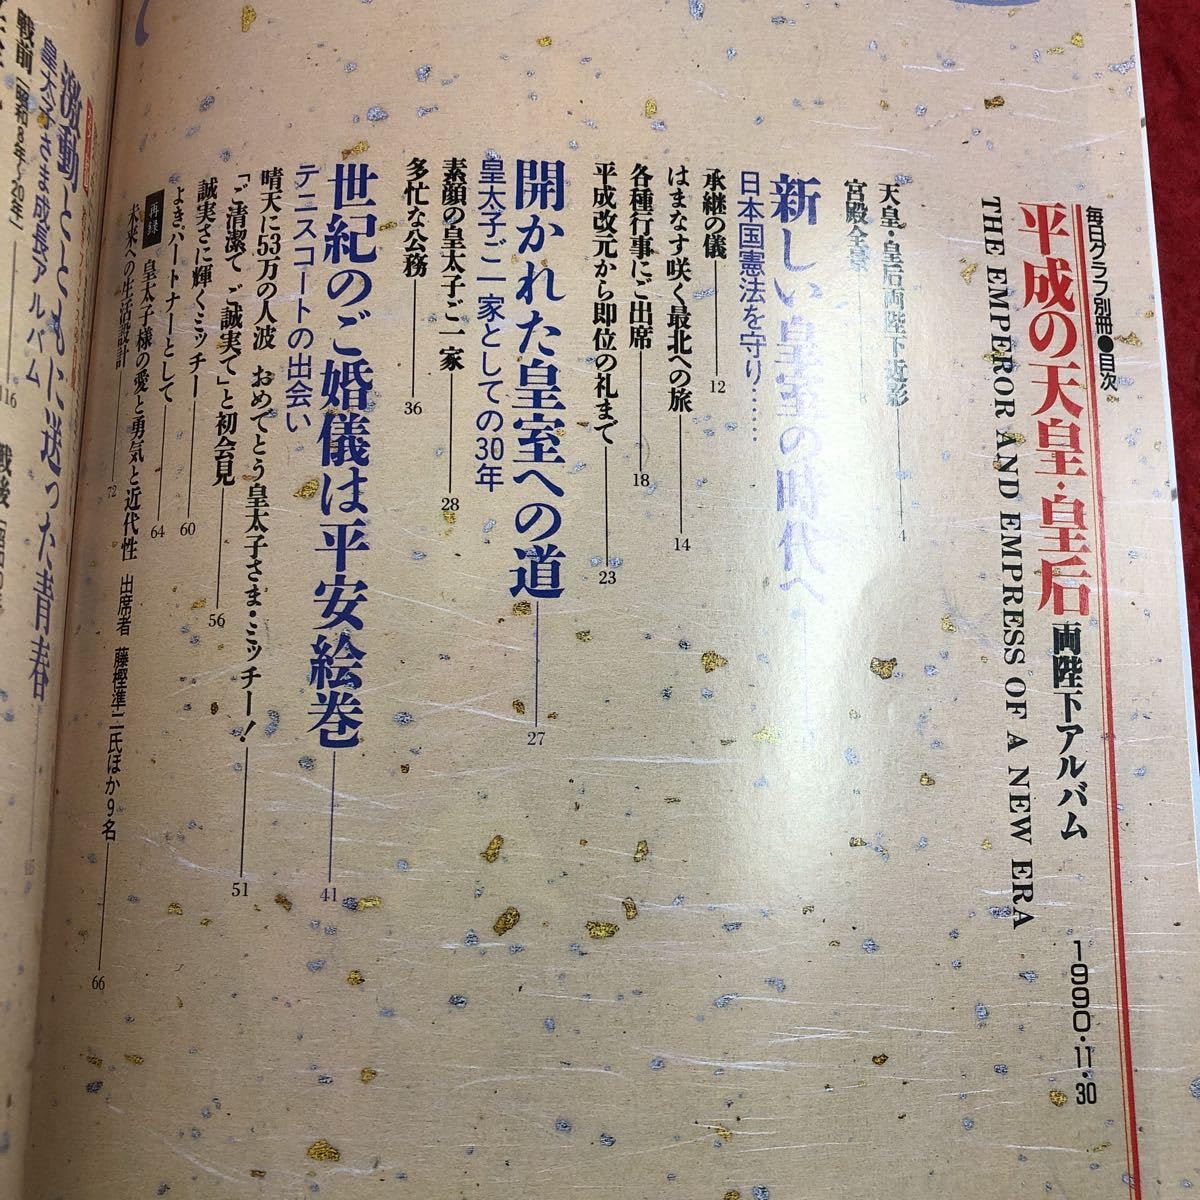 毎日グラフ別冊●目次
平成の天皇・皇后 両陛下アルバム
THE EMPEROR AND EMPRESS OF A NEW ERA
1990・11・30
天皇・皇后両陛下近影 4
宮殿全景 8
新しい皇室の時代へ
日本国憲法を守り……
承継の儀 12
はまなす咲く最北への旅 14
各種行事にご出席 18
平成改元から即位の礼まで 23
開かれた皇室への道 27
皇太子ご一家としての30年
素顔の皇太子ご一家 28
多忙な公務 36
世紀のご婚儀は平安絵巻 41
テニスコートの出会い
晴天に53万の人波 おめでとう皇太子さま・ミッチー! 51
「ご清潔で ご誠実で」と初会見 56
誠実さに輝くミッチー 60
よきパートナーとして 64
再録 皇太子様の愛と勇気と近代性 出席者 藤樫準二氏ほか9名 66
未来への生活設計 72
激動とともに送った青春
皇太子さま成長アルバム
戦前［昭和8年〜20年］ 116